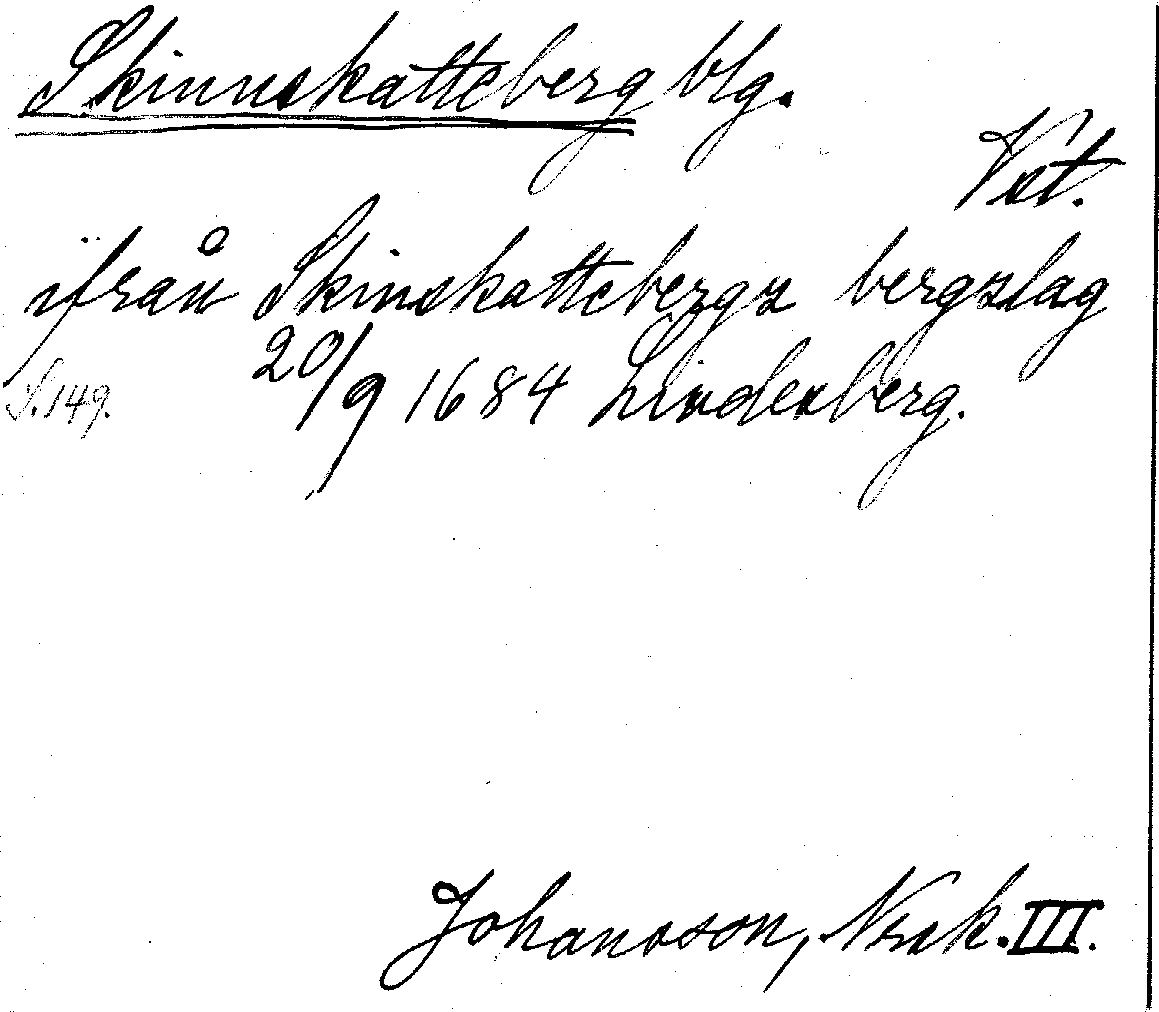 Skinnskatteberg blg.
Vst.
ifrån Skinskattebergz bergzlag
S. 149. 20/9 1684 Lindesberg.
Johansson, Nrsk. III.